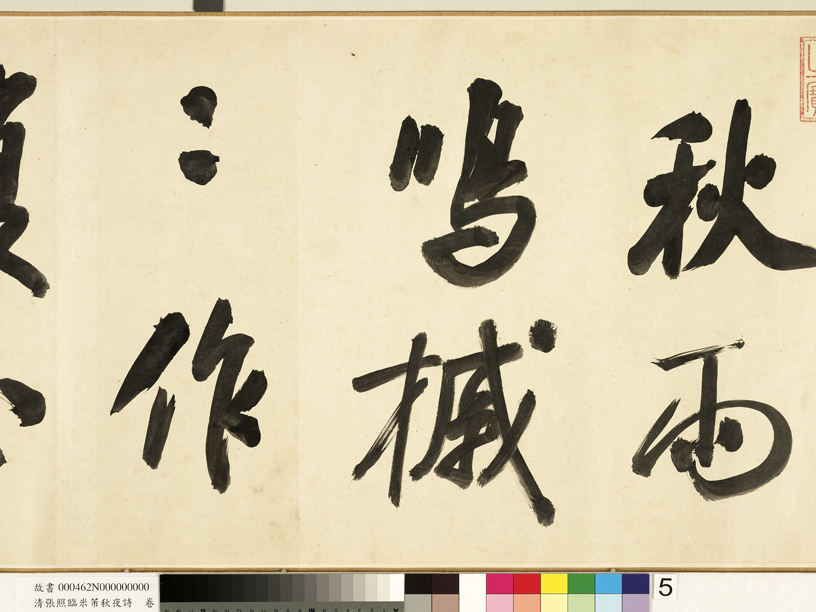 秋雨
鳴槭
：作
故書 000462N000000000
清張照臨米芾秋夜詩　卷
5